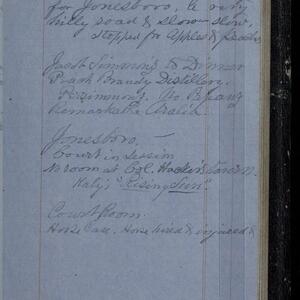 for Jonesboro, a very
hilly road & slow - slow,
stopped for Apples & Peaches
Jacob Simmons to Dinner
Peach Brandy Distillery
Fitzimmons, Geo.
Remarkable
Jonesboro, -
Court in session
No room at Col. Tavern
Katy's "Rising Sun".
Court Room.
Horse Case. Horse hired & injured &